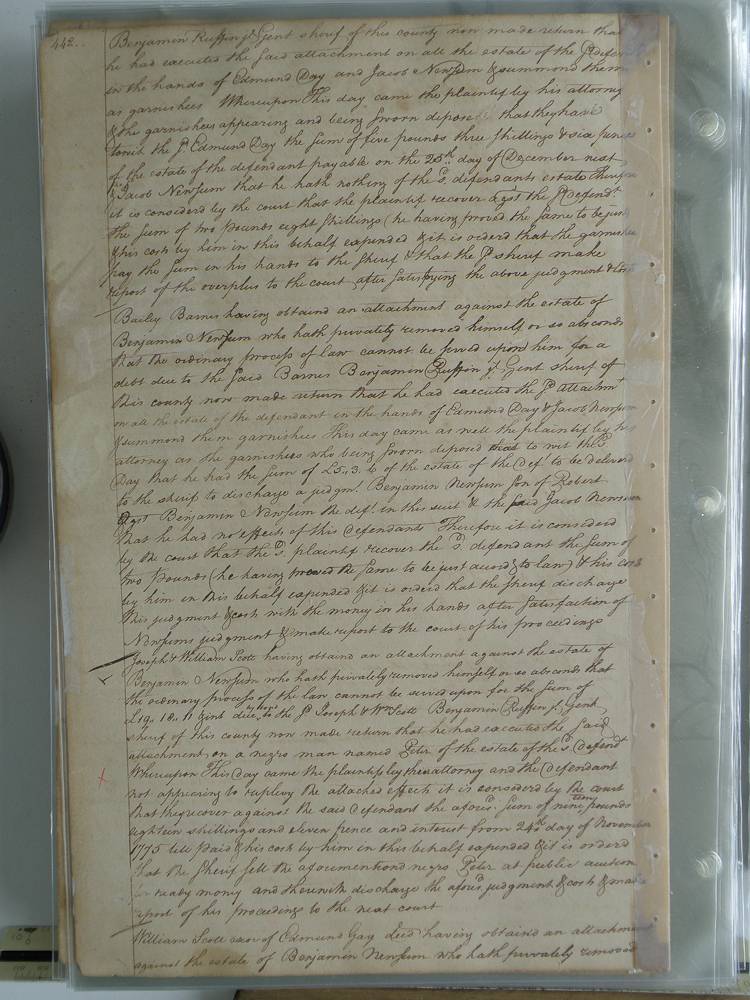 442..
Benjamin Ruffin jr. Gent sherif of this county now made return that
he had executed the said attachment on all the estate of the sd. defen
in the hands of Edmund Day and Jacob Newsum & summond them
as garnishees Whereupon This day came the plaintif by his attorney
& the garnishees appearing and being sworn depose that they have
towit the sd. Edmund Day the sum of five pounds three shillings & six pence
of the estate of the defendant payable on the 25th day of December next
& Jacob Newsum that he hath nothing of the sd. defendants estate Therefore
it is considerd by the court that the plaintif recover agst the sd. Defendt.
the sum of two pounds eight shillings (he having proved the same to be just)
& his costs by him in this behalf expended & it is orderd that the garnishee
pay the sum in his hands to the sherif & that the sd. sherif make
report of the overplus to the court after satisfying the above judgment & costs
Bailey Barnes having obtaind an attachment against the estate of
Benjamin Newsum who hath privately removed himself or so absconds
that the ordinary process of law cannot be served upon him for a
debt due to the said Barnes Benjamin Ruffin jr. Gent sherif of
this county now made return that he had executed the sd. attachmt.
on all the estate of the defendant in the hands of Edmund Day & Jacob Newsum
& summond them garnishees This day came as well the plaintif by his
attorney as the garnishees who being sworn deposed to wit the sd.
Day that he had the sum of £5.3.6 of the estate of the Deft. to be deliverd
to the sherif to discharge a judgmt. Benjamin Newsum son of Robert
agst Benjamin Newsum the deft. in this suit & the said Jacob Newsum
that he had no effects of this defendants Therefore it is considered
by the court that the sd. plaintif recover the sd. defendant the sum of
two pounds (he having proved the same to be just accordg to law) & his costs
by him in this behalf expended & it is orderd that the sherif discharge
this judgment & costs with the money in his hands after satisfaction of
Newsums judgment & make report to the court of his proceedings
Joseph & William Scott having obtaind an attachment against the estate of
Benjamin Newsum who hath privately removed himself or so absconds that
the ordinary process of the law cannot be served upon for the sum of
£19.18.11 & int due to the sd. Joseph & Wm Scott Benjamin Ruffin jr. Gent
sherif of this county now made return that he had executed the said
attachment on a negro man named Peter of the estate of the sd. Defendt
Whereupon This day came the plaintifs by their attorney and the Defendant
not appearing to replevy the attached effects it is considerd by the court
that they recover against the said defendant the aforesd. sum of nineteen pounds
eighteen shillings and eleven pence and interest from 24th day of November
1775 till paid & his costs by him in this behalf expended & it is orderd
that the sherif sell the aforementiond negro Peter at public auction
for ready money and therewith discharge the aforesd. judgment & costs & make
report of his proceedings to the next court
William Scott exor of Edmund Gay decd having obtaind an attachment
against the estate of Benjamin Newsum who hath privately removed